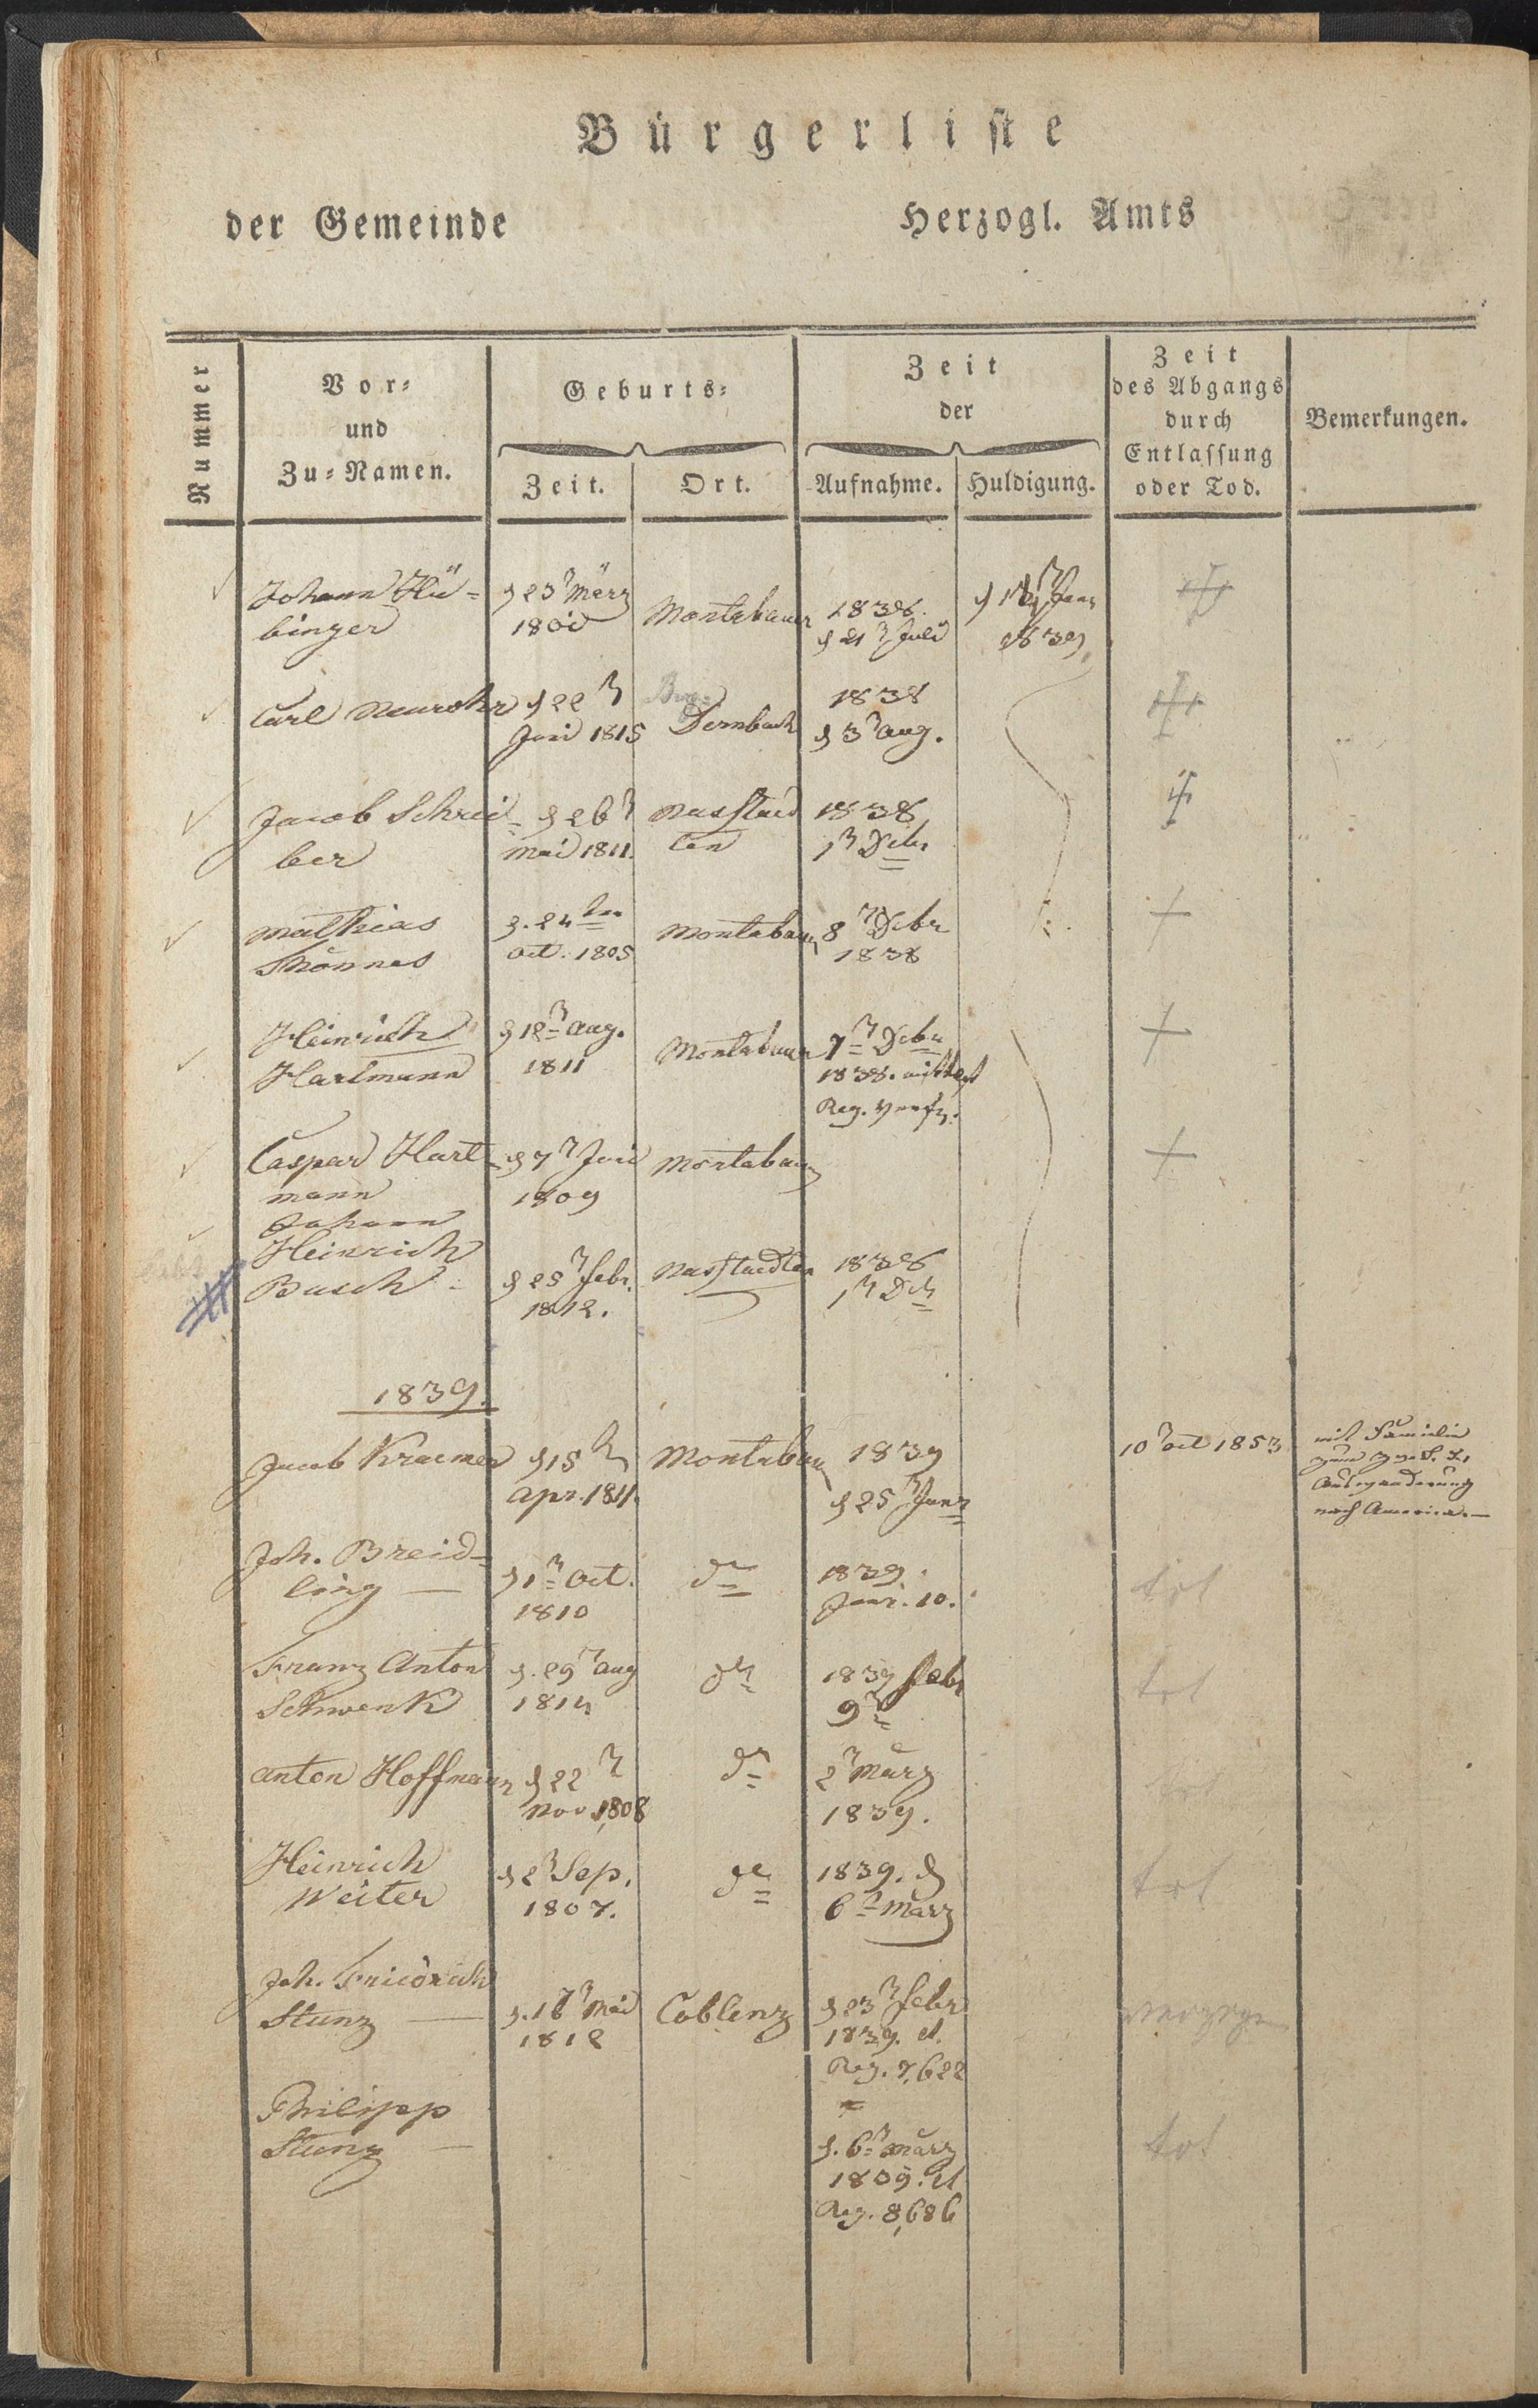 Bürgerliste
der Gemeinde Herzogl. Amts
Nummer
Vor=
und
Zu=Namen.
Geburts=
Zeit. Ort.
Zeit
der
Aufnahme. Huldigung.
Zeit
des Abgangs
durch
Entlassung
oder Tod.
Bemerkungen.
Johann Hü= 23 März Montabaur 1838.
binger 21 Juli 1839
Carl Neurohr 22 1838
Juni 1815 Dernbach 3 Aug.
Jacob Schrei- 26 Nasstäd 1838
ber Mai 1811. ten 1 Dcbr
Mathias 24ten Montabaur 8 Dcbr
Thönnes Oct. 1805 1838
Heinrich 12 Aug. Montabaur 7 Dcbr
Hartmann 1811 1838.
Reg.
Caspar Hart- 7 Juni Montabaur
mann 1809
Johann
Heinrich
Busch 25 Febr. Nasstaedten 1838
1812. 1
1839.
Jacob Kraemer 15 Montabaur 1839 10 Oct 1853 mit Familie
Apr. 1811. 25 Janr
Auswanderung
nach America.—
Joh. Breid=
ling — 1 Oct. do 1839. tot
1810 Janr. 10.
Franz Anton 29 Aug do 1839 Febr tot
Schwenk 1814 9
Anton Hoffmann 22 do 2 März
Nov 1808 1839.
Heinrich 2 Sep. do 1839. d tot
Weiter 1807. 6 März
Joh. Friedrich
Stunz — 16 Mai Coblenz 23 Febr
1812 1839. d.
Reg. 7,622
Philipp
Stunz — 6 März tot
1809. d
Reg. 8,686